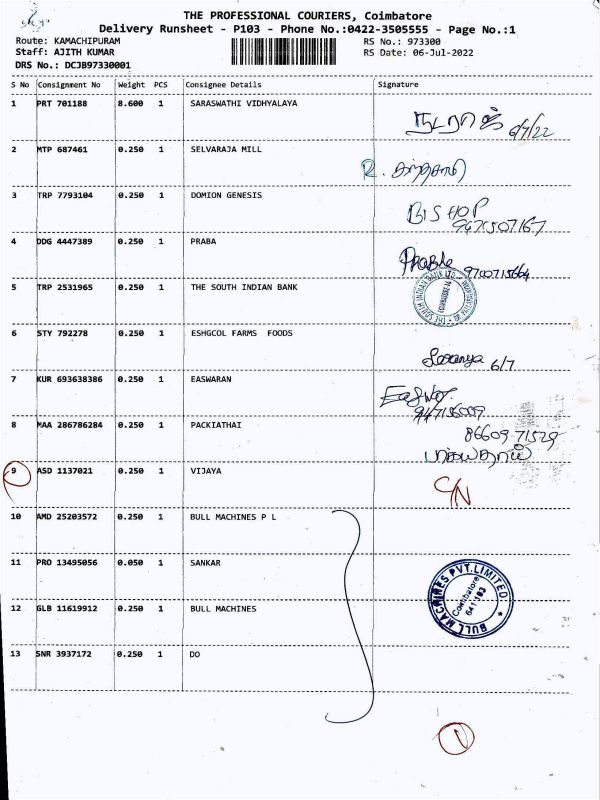 THE PROFESSIONAL COURIERS, Coimbatore
Delivery Runsheet - P103 - Phone No.:0422-3505555 - Page No.:1
Route: KAMACHIPURAM
RS No.: 973300
Staff: AJITH KUMAR
RS Date: 06-Jul-2022
DRS No.: DCJB97330001
S No Consignment No Weight PCS Consignee Details Signature
1 PRT 701188 8.600 1 SARASWATHI VIDHYALAYA
நடராஜ் 6/7/22
2 MTP 687461 0.250 1 SELVARAJA MILL
R.
3 TRP 7793104 0.250 1 DOMION GENESIS
BISHOP
4 DDG 4447389 0.250 1 PRABA
Prabha
5 TRP 2531965 0.250 1 THE SOUTH INDIAN BANK
THE SOUTH INDIAN BANK LTD
6 STY 792278 0.250 1 ESHGCOL FARMS FOODS
Saranya 6/7
7 KUR 693638386 0.250 1 EASWARAN
8 MAA 286786284 0.250 1 PACKIATHAI
86609 71529
பாக்யதாய்
9 ASD 1137021 0.250 1 VIJAYA
C/N
10 AMD 25203572 0.250 1 BULL MACHINES P L
11 PRO 13495056 0.050 1 SANKAR
BULL MACHINES PVT.LIMITED
Coimbatore
641 103
12 GLB 11619912 0.250 1 BULL MACHINES
13 SNR 3937172 0.250 1 DO
1